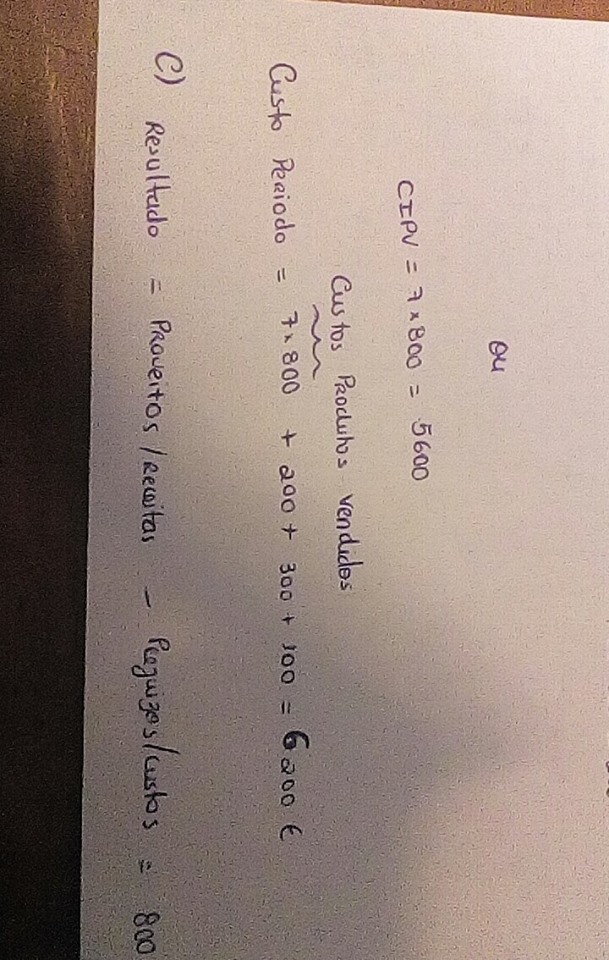 ou
CIPV = 7 x 800 = 5600
Custos Produtos vendidos
Custo Periodo = 7 x 800 + 200 + 300 + 100 = 6200 €
C) Resultado = Proveitos / Receitas - /custos = 800